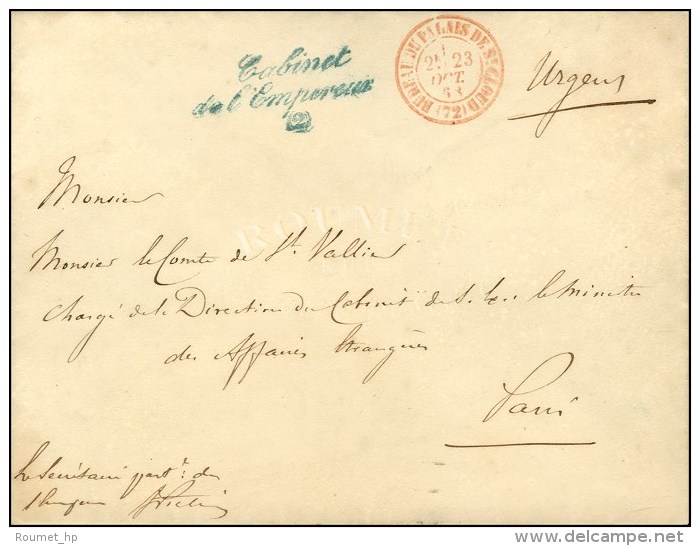 Cabinet
de l'Empereur
2
BUREAU DU PALAIS DE St CLOUD (72)
23
OCT.
68
Urgent
ROUMET
Monsieur
Monsieur le Comte de St. Vallier
Chargé de la Direction du Cabinet de S. Ex. le Ministre
des Affaires Etrangères
Paris
Le Secrétaire part. de
l'Empereur
Roumet_hp
delcampe.net